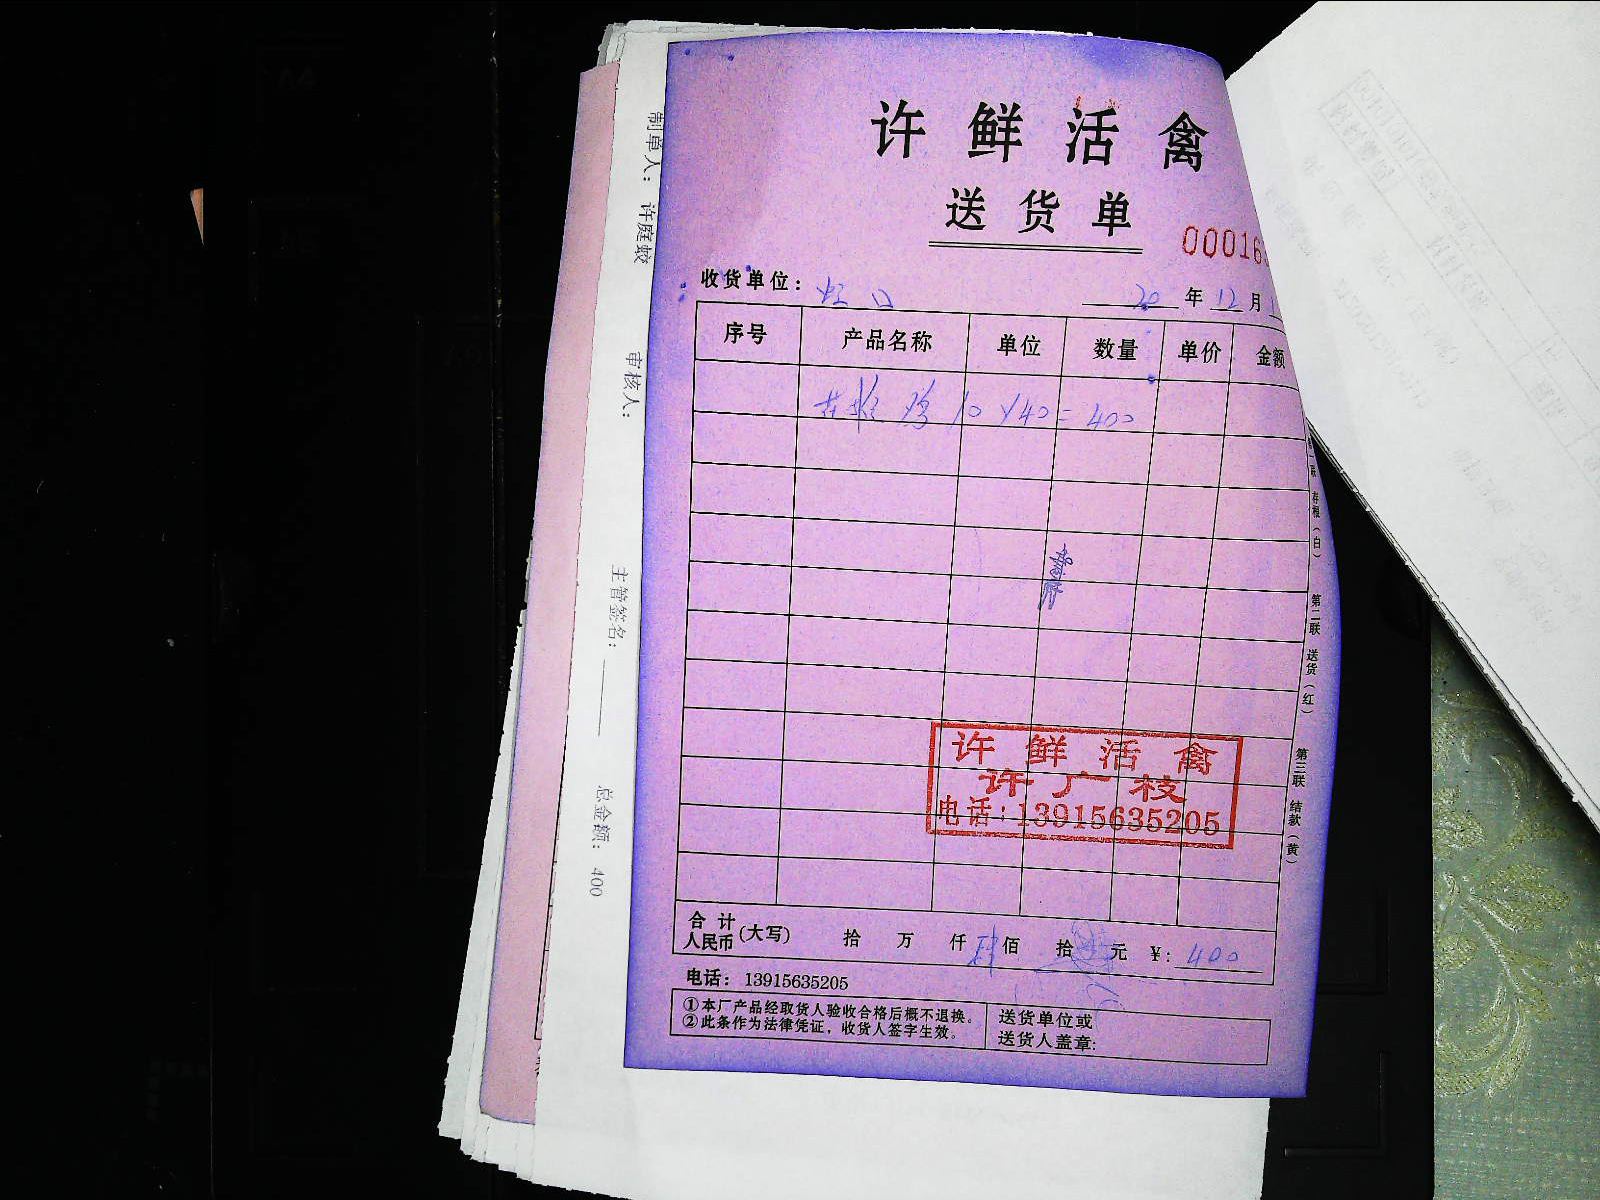 许鲜活禽
送货单
00016
收货单位：虹口 20年12月1
序号 产品名称 单位 数量 单价 金额
鸡 10×40=400
许鲜活禽
许广枝
电话：13915635205
合计人民币(大写) 拾 万 仟 肆佰 拾 元 ¥：400
电话：13915635205
①本厂产品经取货人验收合格后概不退换。
②此条作为法律凭证，收货人签字生效。
送货单位或
送货人盖章:
联 存根（白） 第二联 送货（红） 第三联 结款（黄）
制单人： 许庭蛟 审核人： 主管签名： 总金额： 400